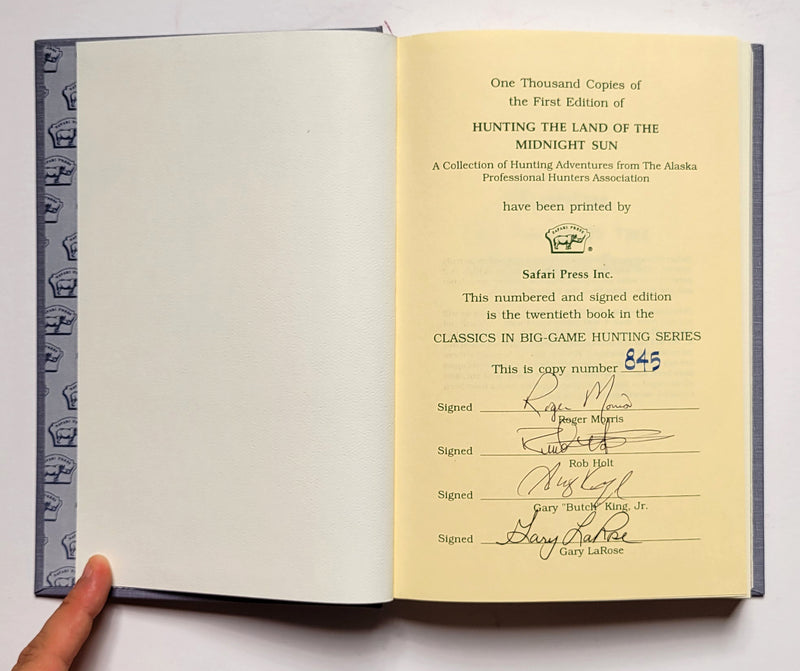 One Thousand Copies of
the First Edition of
HUNTING THE LAND OF THE
MIDNIGHT SUN
A Collection of Hunting Adventures from The Alaska
Professional Hunters Association
have been printed by
SAFARI PRESS
®
Safari Press Inc.
This numbered and signed edition
is the twentieth book in the
CLASSICS IN BIG-GAME HUNTING SERIES
This is copy number 845
Signed Roger Morris
Roger Morris
Signed
Rob Holt
Signed
Gary "Butch" King, Jr.
Signed Gary LaRose
Gary LaRose